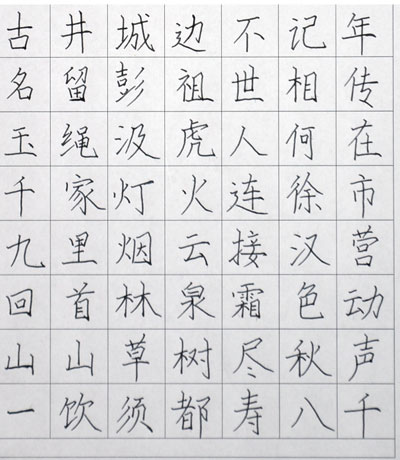 古井城边不记年
名留彭祖世相传
玉绳汲虎人何在
千家灯火连徐市
九里烟云接汉营
回首林泉霜色动
山山草树尽秋声
一饮须都寿八千